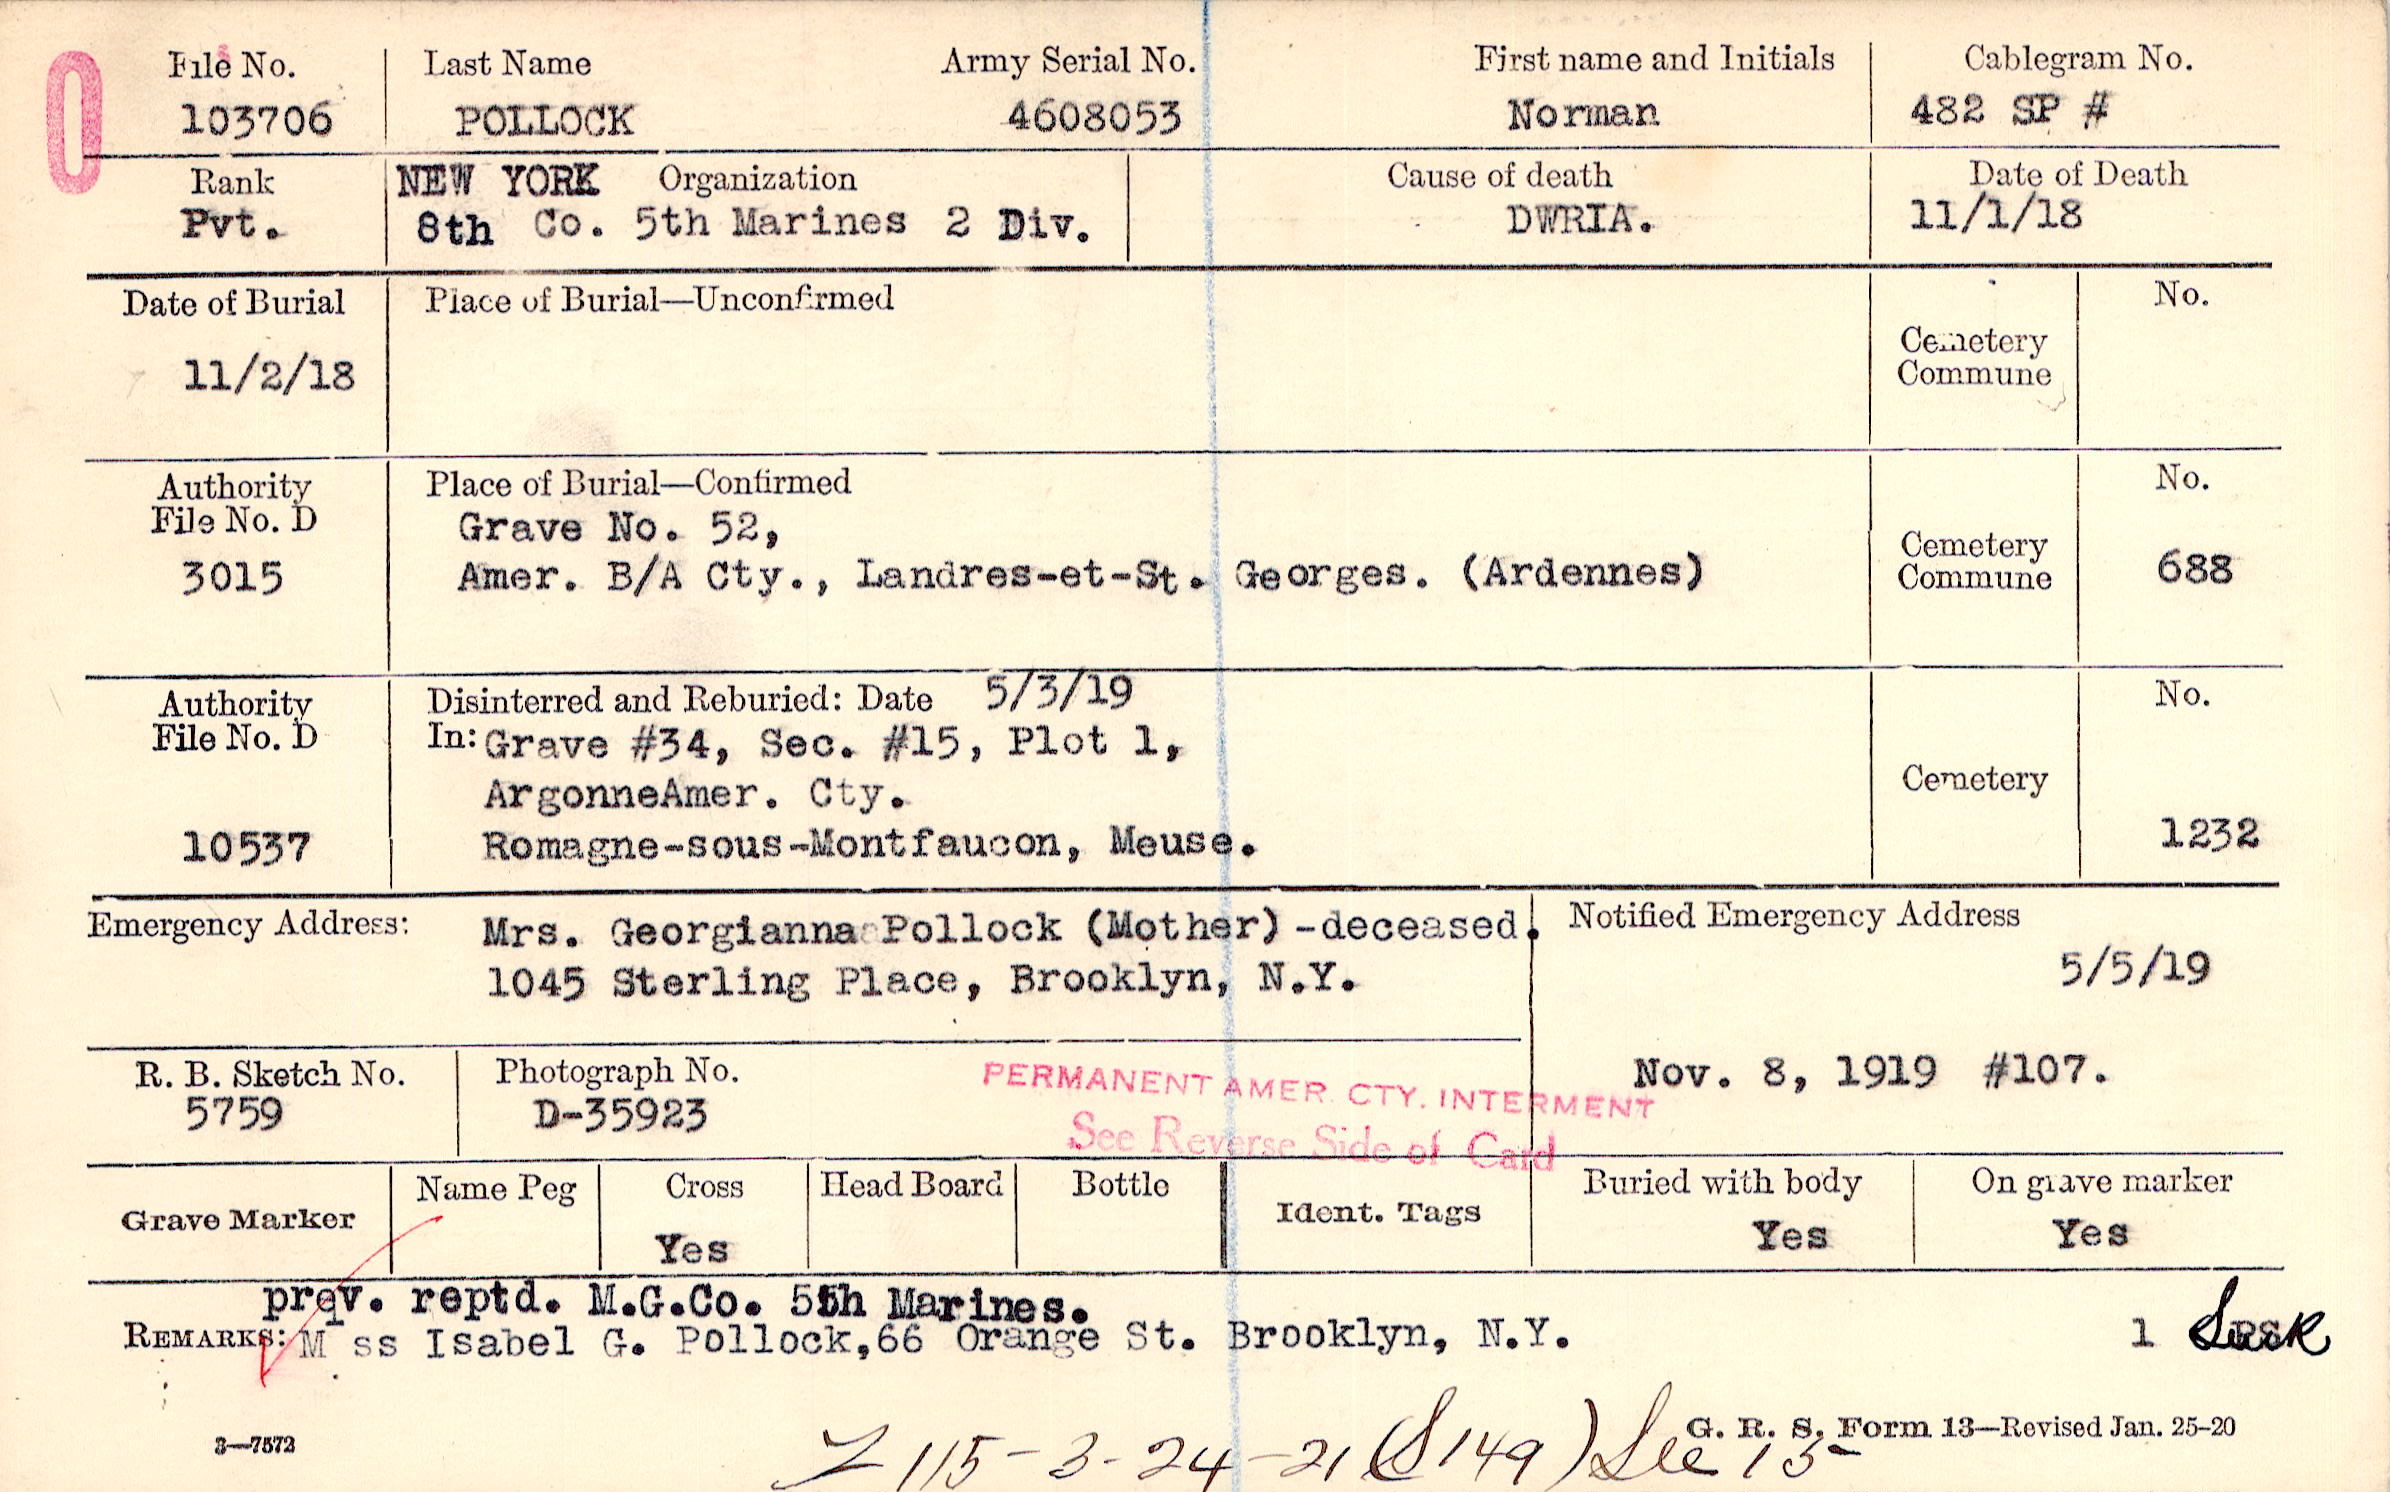 0
File No. Last Name Army Serial No. First name and Initials Cablegram No.
103706 POLLOCK 4608053 Norman 482 SP #
Rank NEW YORK Organization Cause of death Date of Death
Pvt. 8th Co. 5th Marines 2 Div. DWRIA. 11/1/18
Date of Burial Place of Burial—Unconfirmed No.
Cemetery
Commune
11/2/18
Authority Place of Burial—Confirmed No.
File No. D Grave No. 52,
Cemetery
3015 Amer. B/A Cty., Landres-et-St. Georges. (Ardennes) Commune 688
Authority Disinterred and Reburied: Date 5/3/19 No.
File No. D In: Grave #34, Sec. #15, Plot 1,
ArgonneAmer. Cty. Cemetery
10537 Romagne-sous-Montfaucon, Meuse. 1232
Emergency Address: Mrs. Georgianna Pollock (Mother) -deceased. Notified Emergency Address
1045 Sterling Place, Brooklyn, N.Y. 5/5/19
R. B. Sketch No. Photograph No. PERMANENT AMER. CTY. INTERMENT Nov. 8, 1919 #107.
5759 D-35923 See Reverse Side of Card
Grave Marker Name Peg Cross Head Board Bottle Ident. Tags Buried with body On grave marker
Yes Yes Yes
prev. reptd. M.G.Co. 5th Marines.
REMARKS: M ss Isabel G. Pollock,66 Orange St. Brooklyn, N.Y. 1
G. R. S. Form 13—Revised Jan. 25-20
3—7572
115-3-24-21 (S149) See 15